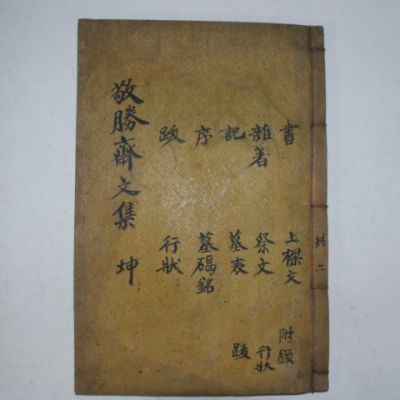 共二
書
雜著
記
序
跋
上樑文
祭文
墓表
墓碣銘
行狀
附錄
行狀
跋
敬勝齋文集 坤